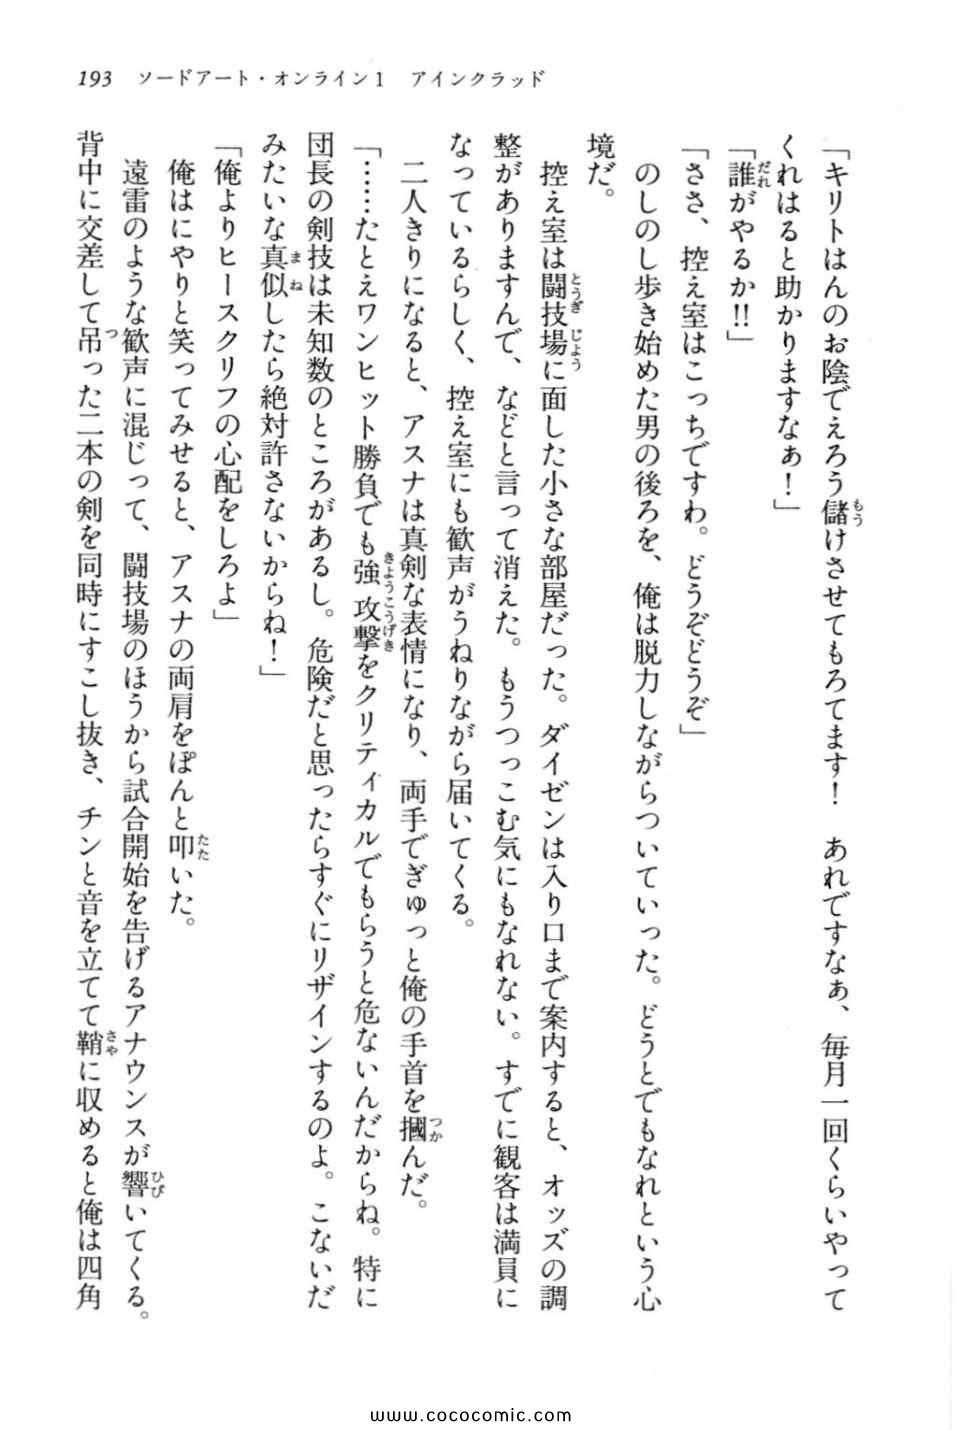 193　ソードアート・オンライン1　アインクラッド
「キリトはんのお陰でえろう儲けさせてもろてます！　あれですなぁ、毎月一回くらいやって
くれはると助かりますなぁ！」
「誰がやるか!!」
「ささ、控え室はこっちですわ。どうぞどうぞ」
　のしのし歩き始めた男の後ろを、俺は脱力しながらついていった。どうとでもなれという心
境だ。
　控え室は闘技場に面した小さな部屋だった。ダイゼンは入り口まで案内すると、オッズの調
整がありますんで、などと言って消えた。もうつっこむ気にもなれない。すでに観客は満員に
なっているらしく、控え室にも歓声がうねりながら届いてくる。
　二人きりになると、アスナは真剣な表情になり、両手でぎゅっと俺の手首を摑んだ。
「……たとえワンヒット勝負でも強攻撃をクリティカルでもらうと危ないんだからね。特に
団長の剣技は未知数のところがあるし。危険だと思ったらすぐにリザインするのよ。こないだ
みたいな真似したら絶対許さないからね！」
「俺よりヒースクリフの心配をしろよ」
　俺はにやりと笑ってみせると、アスナの両肩をぽんと叩いた。
　遠雷のような歓声に混じって、闘技場のほうから試合開始を告げるアナウンスが響いてくる。
背中に交差して吊った二本の剣を同時にすこし抜き、チンと音を立てて鞘に収めると俺は四角
www.cococomic.com